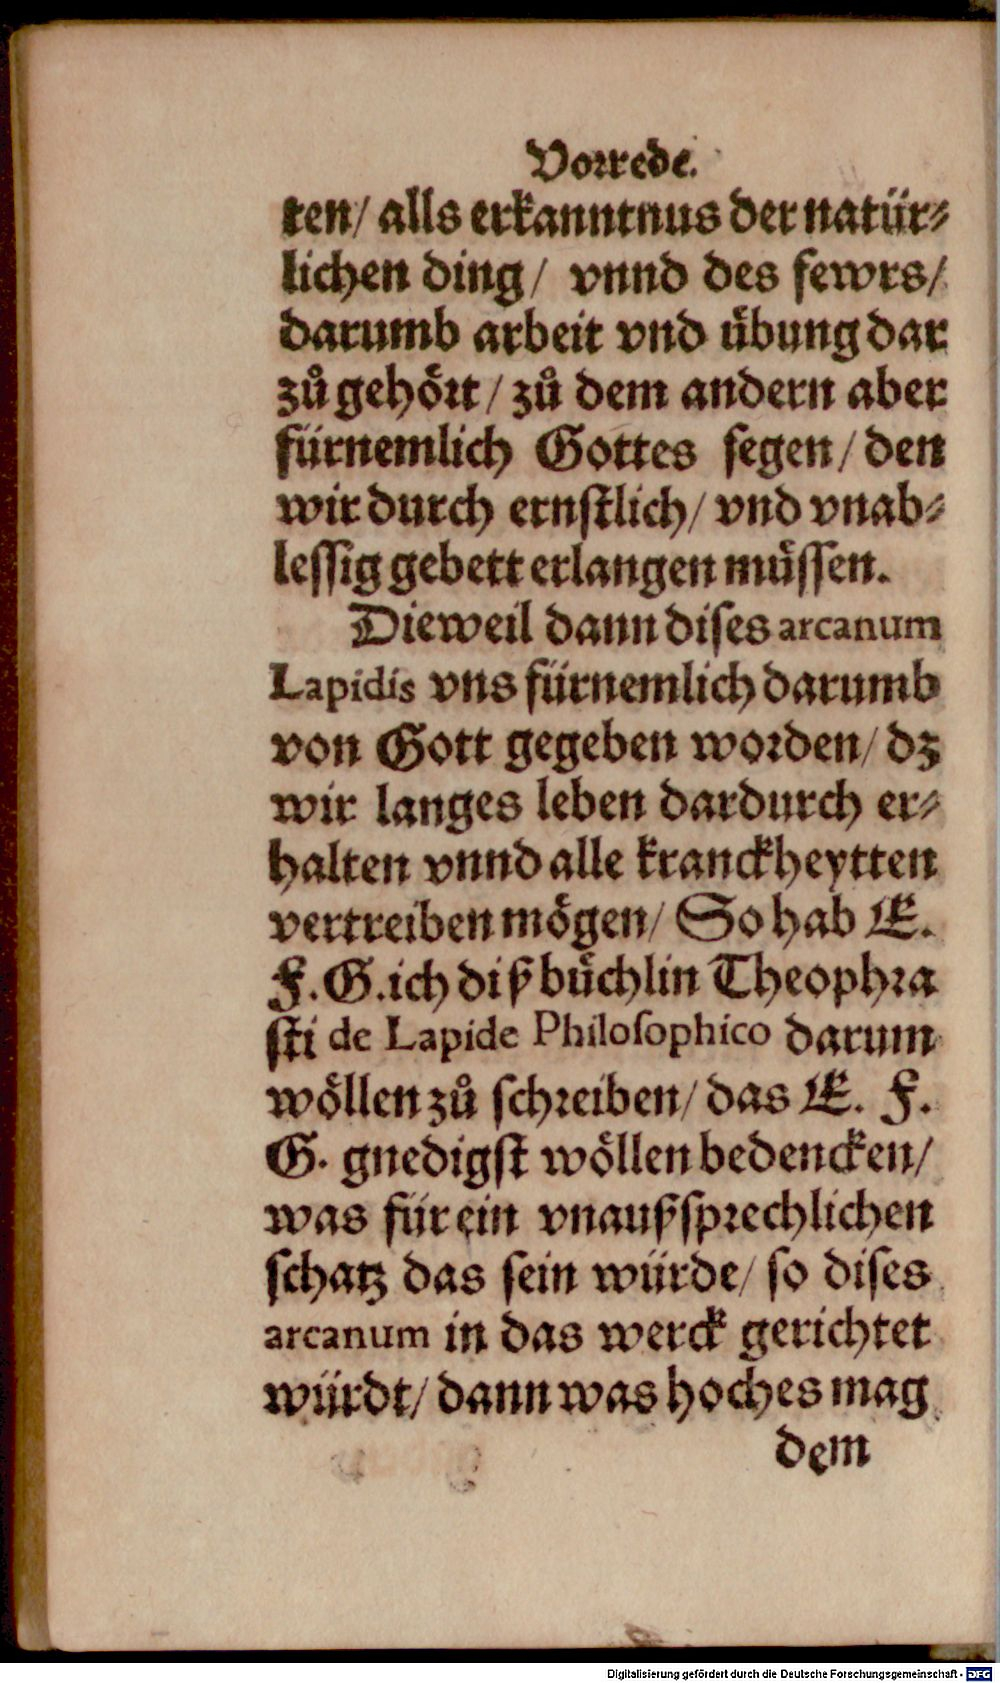 Vorrede.
ten/ alls erkanntnus der natür⸗
lichen ding/ vnnd des fewrs/
darumb arbeit vnd uͤbung dar
zuͦ gehoͤrt/ zuͦ dem andern aber
fürnemlich Gottes segen/ den
wir durch ernſtlich/ vnd vnab⸗
leſſig gebett erlangen muͤſſen.
Dieweil dann diſes arcanum
Lapidis vns fürnemlich darumb
von Gott gegeben worden/ dz
wir langes leben dardurch er⸗
halten vnnd alle kranckheytten
vertreiben moͤgen/ So hab E.
F. G. ich diß buͤchlin Theophra
ſti de Lapide Philoſophico darum
woͤllen zuͦ ſchreiben/ das E. F.
G. gnedigſt woͤllen bedencken/
was für ein vnaußſprechlichen
ſchatz das ſein würde/ ſo diſes
arcanum in das werck gerichtet
würdt/ dann was hoches mag
dem
Digitalisierung gefördert durch die Deutsche Forschungsgemeinschaft - DFG